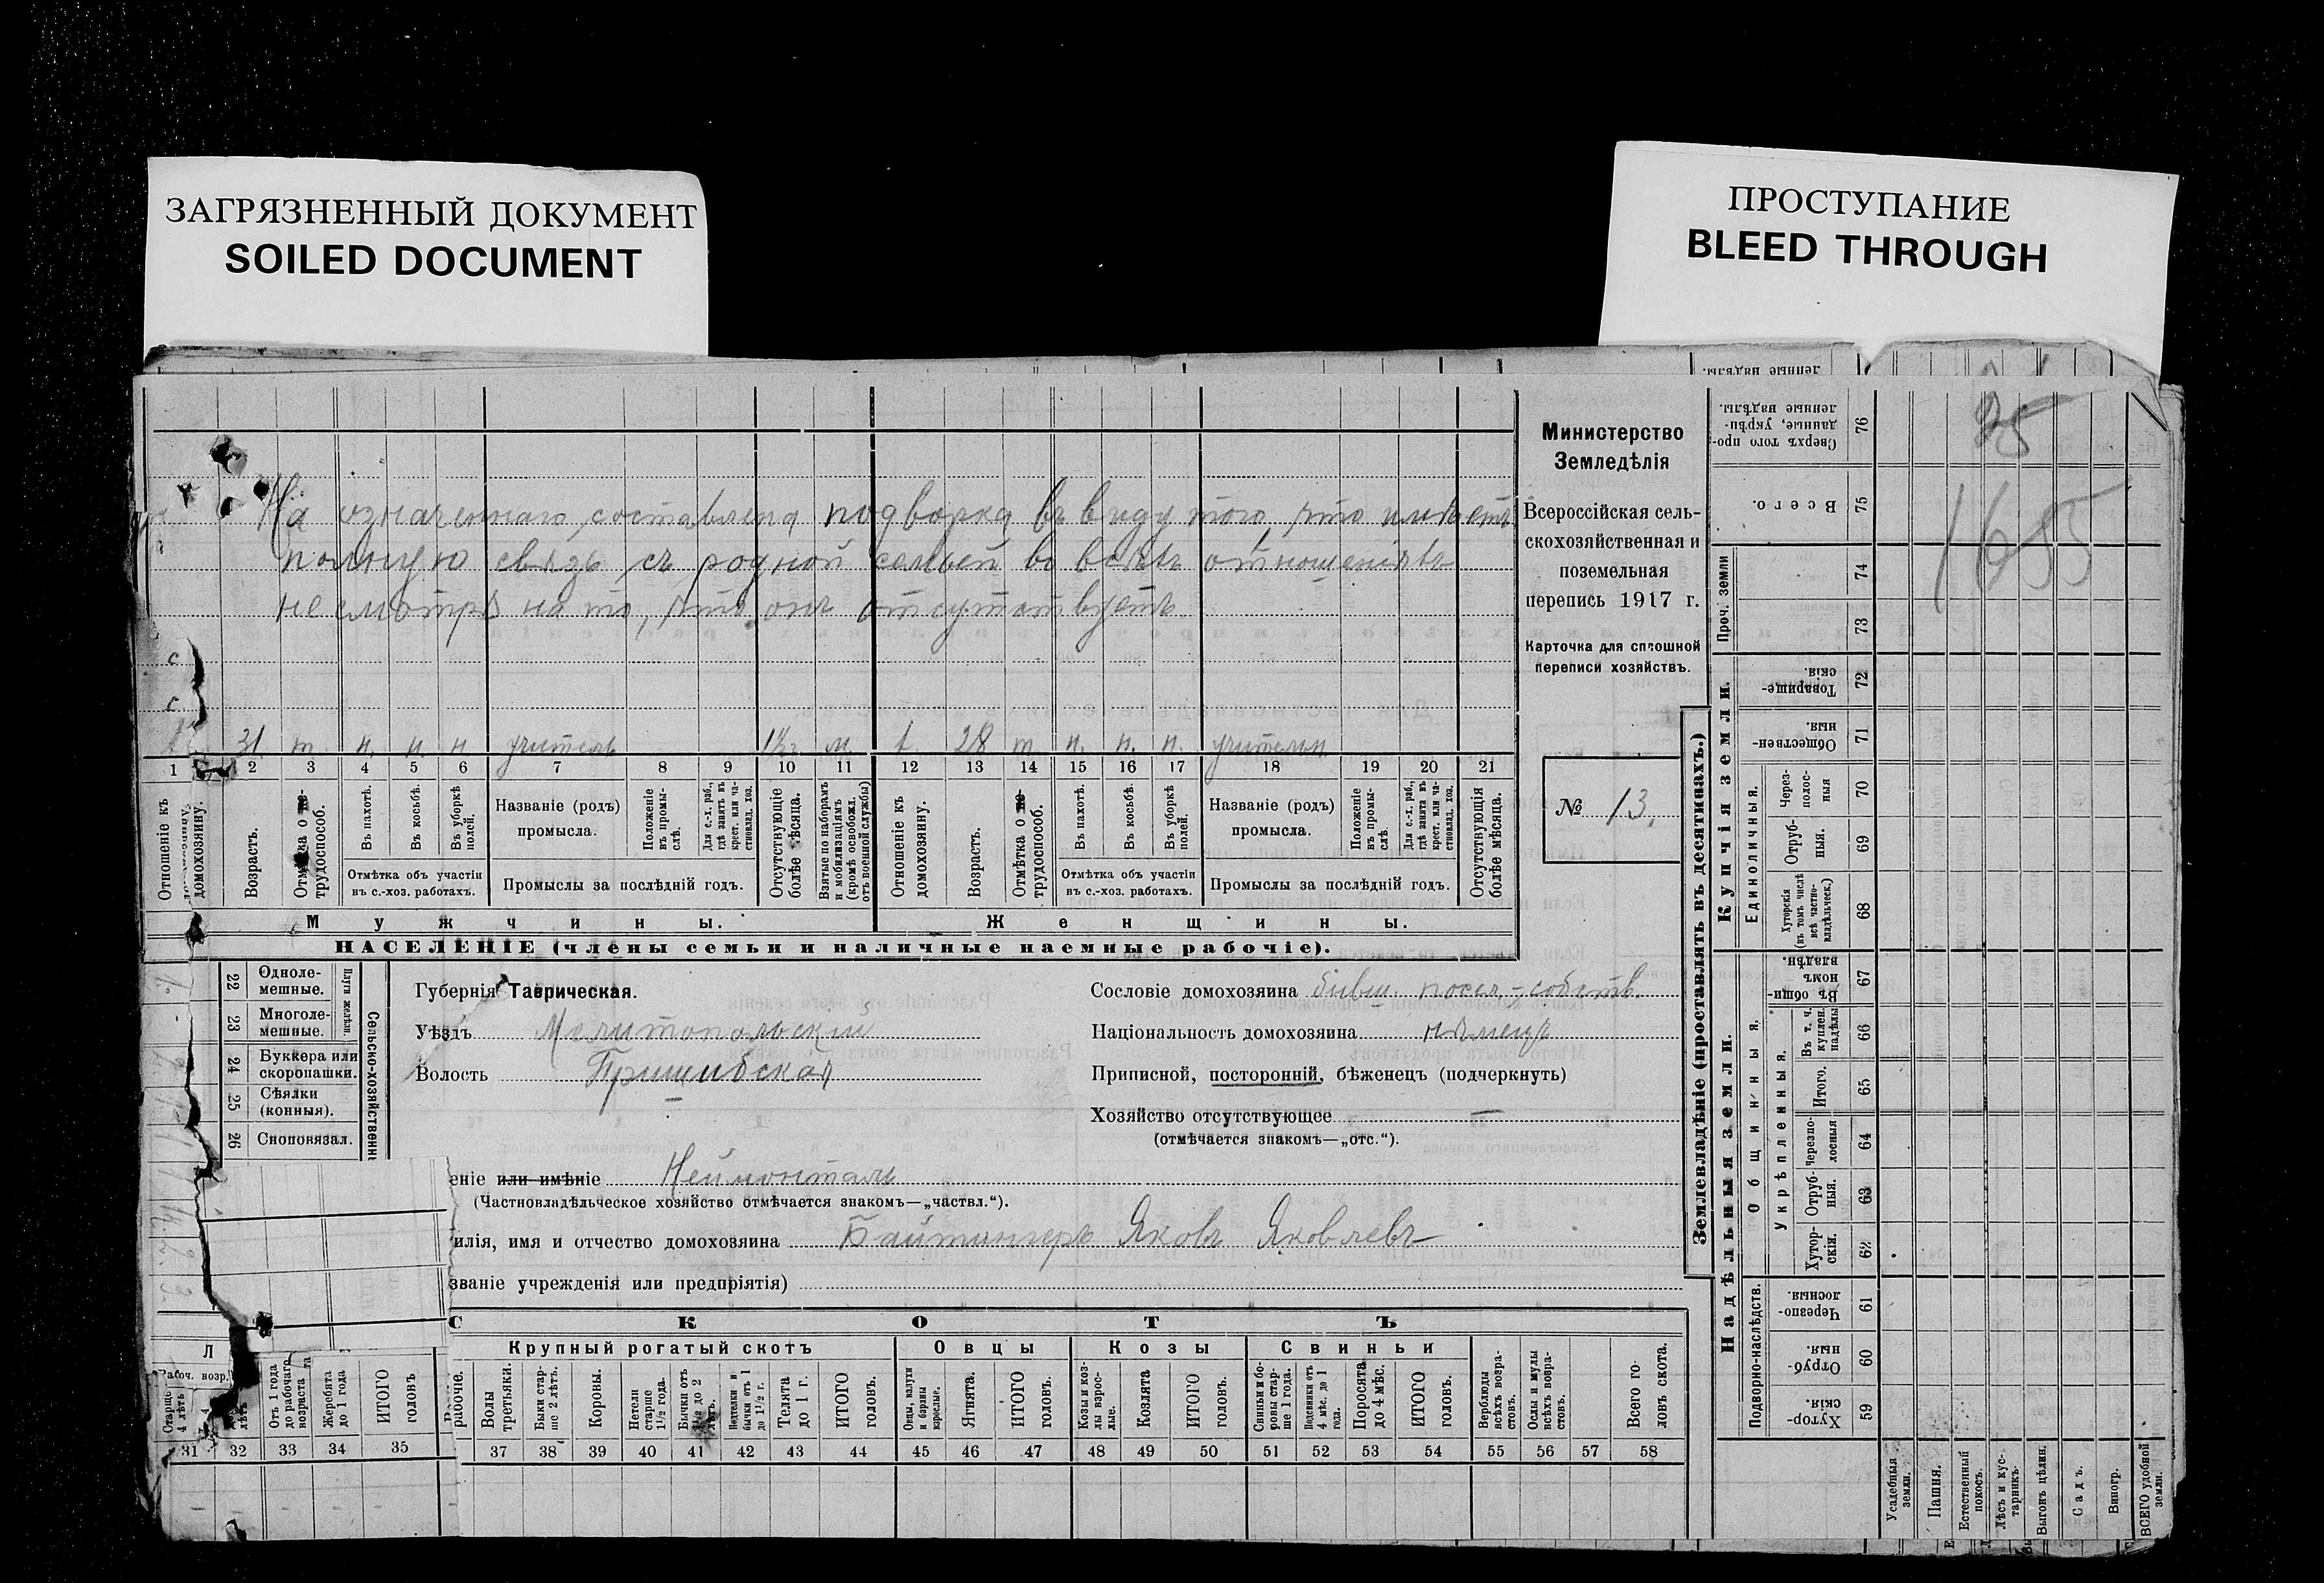 ЗАГРЯЗНЕННЫЙ ДОКУМЕНТ
SOILED DOCUMENT
ПРОСТУПАНИЕ
BLEED THROUGH
На означеннаго составлена подворка въ виду того, что имѣетъ
полную связь съ родной семьей во всѣхъ отношеніяхъ
не смотря на то, что онъ отсутствуетъ
31 т н. н. н учитель 1½ г м. 1 28 т н. н. н. учительн.
1 2 3 4 5 6 7 8 9 10 11 12 13 14 15 16 17 18 19 20 21
Отношеніе къ домохозяину.
Возрастъ.
Отмѣтка о трудоспособ.
Въ пахотѣ.
Въ косьбѣ.
Въ уборкѣ полей.
Отмѣтка объ участіи въ с.-хоз. работахъ.
Названіе (родъ) промысла.
Положеніе въ промыслѣ.
Для с.-х. раб., гдѣ занятъ въ крест. или частновлад. хоз.
Промыслы за послѣдній годъ.
Отсутствующіе болѣе мѣсяца.
Взятые по наборамъ и мобилизаціямъ (кромѣ освобожд. отъ военной службы)
Отношеніе къ домохозяину.
Возрастъ.
Отмѣтка о трудоспособ.
Въ пахотѣ.
Въ косьбѣ.
Въ уборкѣ полей.
Отмѣтка объ участіи въ с.-хоз. работахъ.
Названіе (родъ) промысла.
Положеніе въ промыслѣ.
Для с.-х. раб., гдѣ занята въ крест. или частновлад. хоз.
Промыслы за послѣдній годъ.
Отсутствующія болѣе мѣсяца.
Мужчины.
Женщины.
НАСЕЛЕНІЕ (члены семьи и наличные наемные рабочіе).
Министерство
Земледѣлія
Всероссійская сель-
скохозяйственная и
поземельная
перепись 1917 г.
Карточка для сплошной
переписи хозяйствъ.
№ 13.
22 Одноле-
мешные.
23 Многоле-
мешные.
Плуги желѣзн.
24 Буккера или
скоропашки.
25 Сѣялки
(конныя).
26 Сноповязал.
Губернія Таврическая.
Уѣздъ Мелитопольскій
Волость Пришибская
еніе или имѣніе Неймонталь
(Частновладѣльческое хозяйство отмѣчается знакомъ—„частвл.“).
илія, имя и отчество домохозяина Байтингеръ Яковъ Яковлевъ
званіе учрежденія или предпріятія)
Сословіе домохозяина бывш. посел-собств.
Національность домохозяина нѣмецъ
Приписной, посторонній, бѣженецъ (подчеркнуть)
Хозяйство отсутствующее —
(отмѣчается знакомъ—„отс.“).
СКОТЪ
Л
Рабоч. возр.
Крупный рогатый скотъ
Овцы
Козы
Свиньи
Старше 4 лѣтъ
Отъ 1 года до рабочаго возраста
Жеребята до 1 года
ИТОГО головъ
рабочіе.
Волы третьяки.
Быки старше 2 лѣтъ.
Коровы.
Нетели старше 1½ года.
Бычки отъ 1½ до 2 лѣтъ.
Подтелки и бычки отъ 1 до 1½ г.
Телята до 1 г.
ИТОГО головъ.
Овцы, валухи и бараны взрослые.
Ягнята.
ИТОГО головъ.
Козы и козлы взрослые.
Козлята
ИТОГО головъ.
Свиньи и боровы старше 1 года.
Подсвинки отъ 4 мѣс. до 1 года.
Поросята до 4 мѣс.
ИТОГО головъ.
Верблюды всѣхъ возрастовъ.
Ослы и мулы всѣхъ возрастовъ.
Всего головъ скота.
31 32 33 34 35 37 38 39 40 41 42 43 44 45 46 47 48 49 50 51 52 53 54 55 56 57 58
Землевладѣніе (проставлять въ десятинахъ.)
Надѣльныя земли.
Купчія земли.
Проч. земли
Подворно-наслѣдств.
Общинныя.
Укрѣпленныя.
Единоличныя.
76 Сверхъ того проданные, укрѣпленные надѣлы.
75 Всего.
74
73
72 Товарищескія.
71 Общественныя.
70 Черезполосныя
69 Отрубныя.
68 Хуторскія (въ томъ числѣ всѣ частновладѣльческ.)
67 Въ общинномъ владѣн.
66 Въ т. ч. куплен. надѣлы
65 Итого.
64 Черезполосныя
63 Отрубныя.
62 Хуторскія.
61 Черезполосныя.
60 Отрубныя.
59 Хуторскія.
Усадебныя земли.
Пашня.
Естественный покосъ.
Лѣсъ и кустарникъ.
Выгонъ цѣлин.
Садъ.
Виногр.
ВСЕГО удобной земли.
25
1655